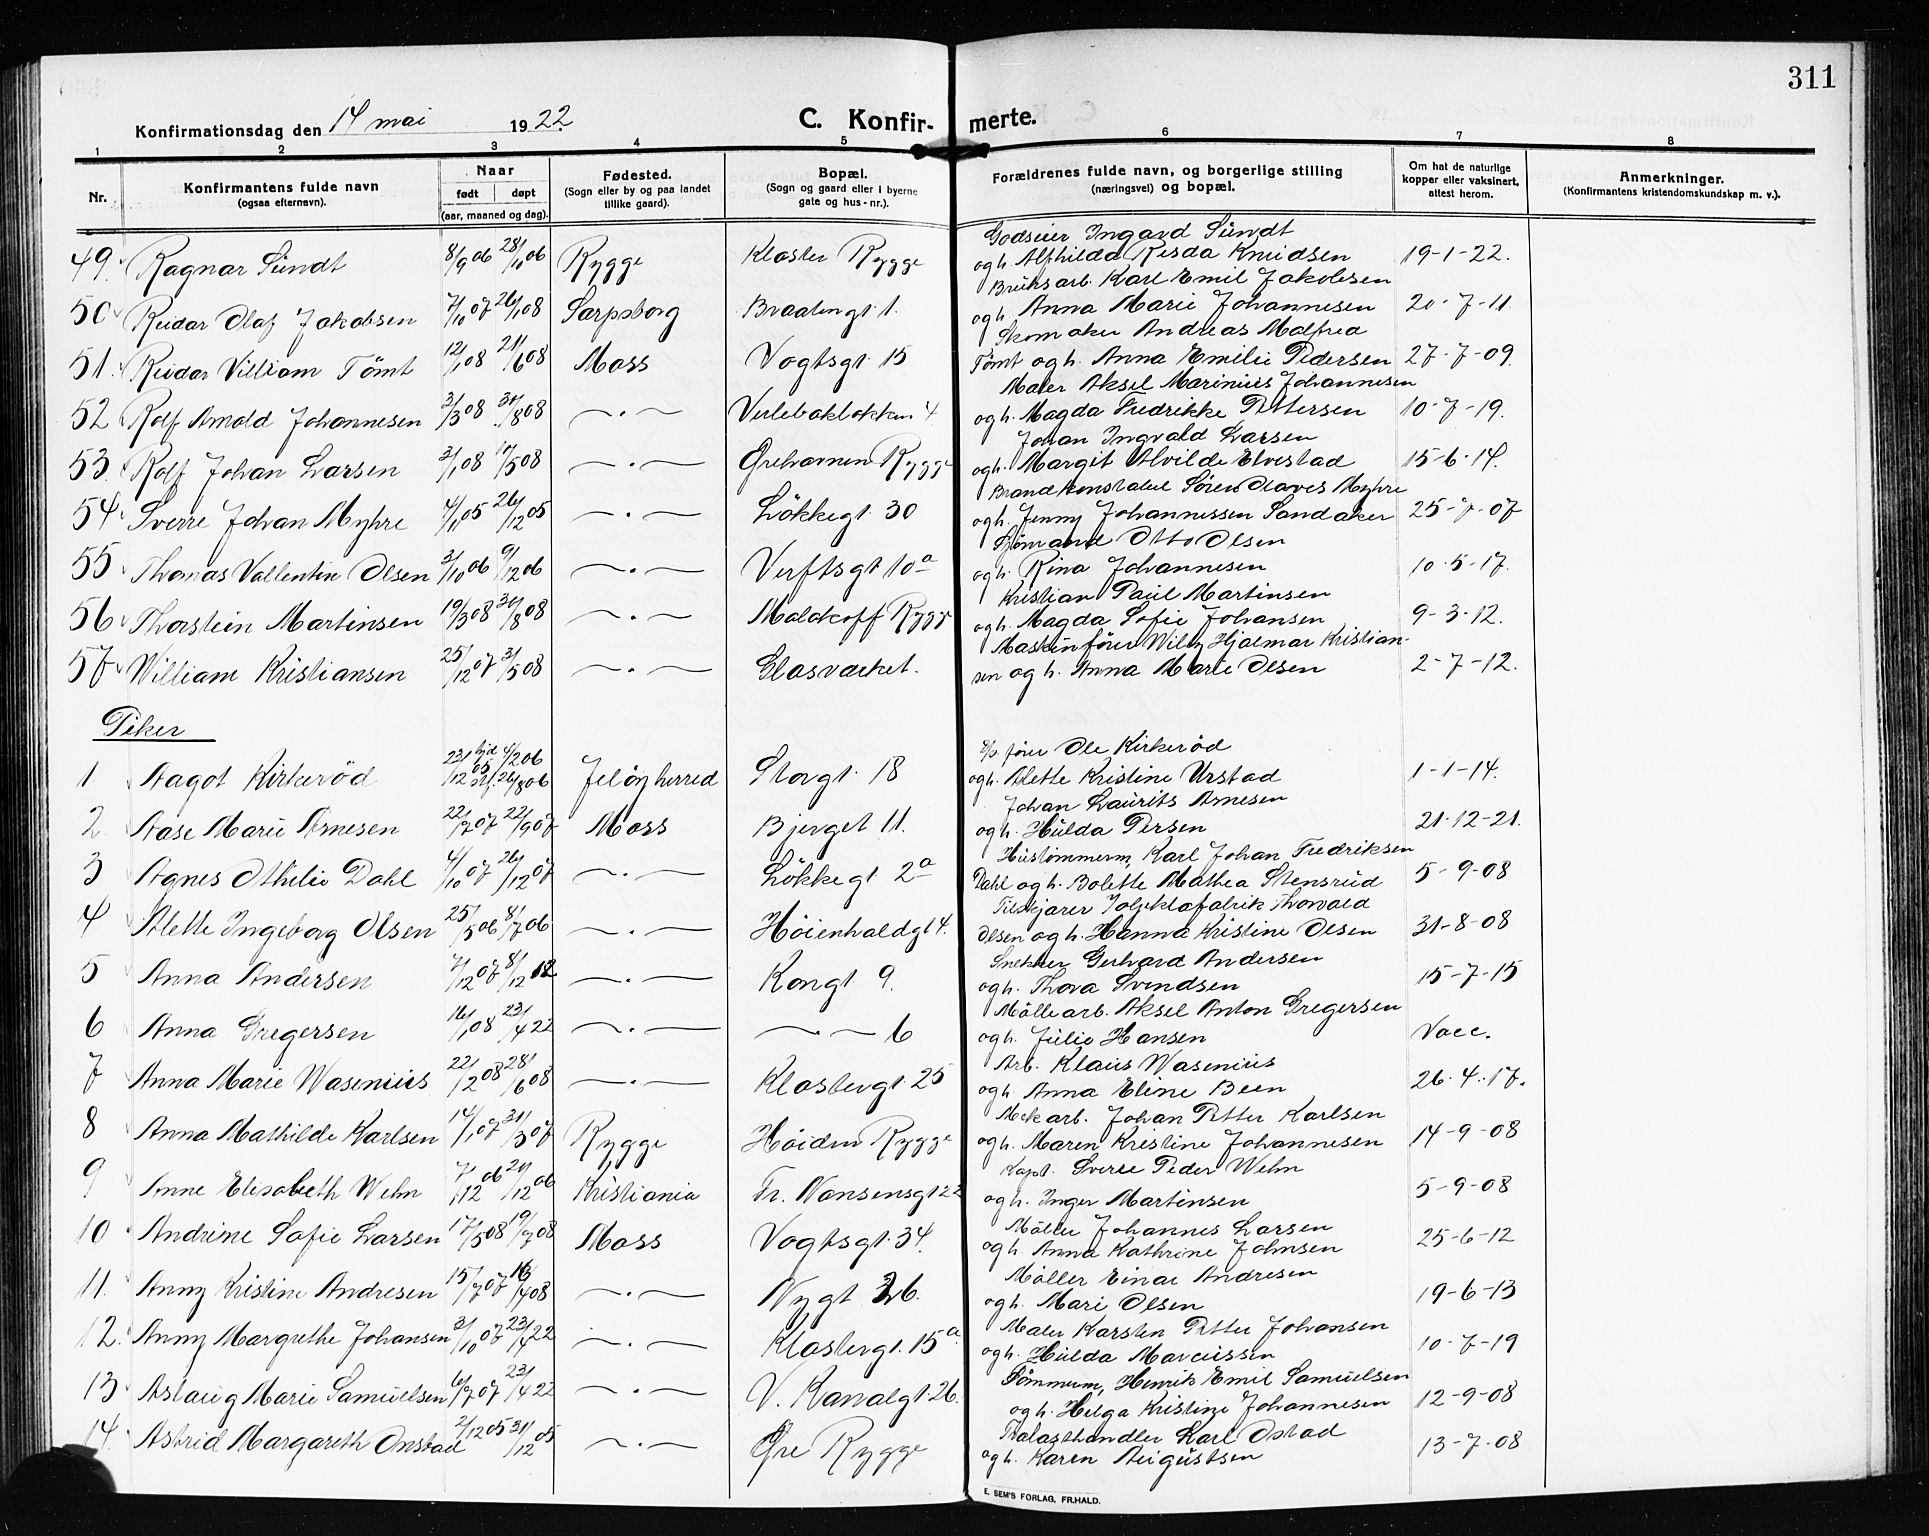 311
Konfirmationsdag den 14 mai 1922. C. Konfirmerte.
1 2 3 4 5 6 7 8
Nr. Konfirmantens fulde navn (ogsaa efternavn). Naar født døpt (aar, maaned og dag). Fødested. (Sogn eller by og paa landet tillike gaard). Bopæl. (Sogn og gaard eller i byerne gate og hus-nr.). Forældrenes fulde navn, og borgerlige stilling (næringsvei) og bopæl. Om hat de naturlige kopper eller vaksinert, attest herom. Anmerkninger. (Konfirmantens kristendomskundskap m. v.).
Godseier Ingard Sundt
49. Ragnar Sundt 8/9 06 28/10 06 Rygge Kloster Rygge og h. Alfhilda Resda Knudsen 19-1-22.
Bruksarb. Karl Emil Jakobsen
50 Reidar Olaf Jakobsen 7/10 07 26/1 08 Sarpsborg Braatengt. 1. og h. Anna Marie Johannesen 20-7-11
Skomaker Andreas Malfred
51. Reidar Villiam Tömt 12/1 08 21/6 08 Moss Vogtsgt. 15 Tömt og h. Anna Emilie Pedersen 27-7-09.
Maler Aksel Marinius Johannesen
52 Rolf Arnold Johannesen 3/3 08 30/8 08 —·— Verlebakløkken 4 og h. Magda Fredrikke Pettersen 10-7-19.
Johan Ingvald Larsen
53. Rolf Johan Larsen 3/1 08 17/5 08 —·— Ørehavnen Rygge og h. Margit Alvilde Elvestad 15-6-14.
Brandkonstabel Sören Olaves Myhre
54. Sverre Johan Myhre 4/1 05 26/12 05 —·— Lökkegt. 30 og h. Jenny Johannessen Sandaker 25-7-07
Sjömand Otto Olsen
55 Thomas Vallentin Olsen 3/10 06 9/12 06 —·— Verftsgt 10a og h. Rina Johannesen 10.5-17.
Kristian Paul Martinsen
56 Thorstein Martinsen 19/3 08 30/8 08 —·— Malakoff Rygge og h. Magda Sofie Johansen 9-3-12.
Maskinfører Willy Hjalmar Kristian-
57 William Kristiansen 25/12 07 31/5 08 —·— Glasværket. sen og h. Anna Marie Olsen 2-7-12.
Piker
fører Ole Kirkerød
1 Aagot Kirkerød 23/12 05 hjd 4/2 06 stf. 26/8 06 Jeløy herred Storgt. 18 og h. Alette Kristine Urstad 1-1-14.
Johan Laurits Arnesen
2 Aase Marie Arnesen 22/7 07 22/9 07 Moss Bjerget 11. og h. Hulda Persen 21-12-21.
Hustømmerm. Karl Johan Fredriksen
3 Agnes Othilie Dahl 4/10 07 26/12 07 —·— Lökkegt 2a Dahl og h. Bolette Mathea Stensrud 5-9-08
Tilskjærer Thorvald
4 Alette Ingeborg Olsen 25/5 06 8/7 06 —·— Høienhaldgt 4. Olsen og h. Hanna Kristine Olsen 31-8-08
Snekker Gerhard Andersen
5 Anna Andersen 7/12 07 8/12 12 —·— Kongt 9. og h. Thora Svendsen 15-7-15
Möllearb. Aksel Anton Gregersen
6 Anna Gregersen 16/1 08 23/4 22 —·— —·— 6 og h. Julie Hansen Vacc.
Arb. Klaus Wasenius
7 Anna Marie Wasenius 22/2 08 28/6 08 —·— Klostergt. 25 og h. Anna Eline Been 26.4.17.
Mek arb. Johan Petter Karlsen
8 Anna Mathilde Karlsen 14/1 07 31/3 07 Rygge Høiden Rygge og h. Maren Kristine Johannesen 14-9-08
Kapt. Sverre Peder Wehn
9 Anne Elisabeth Wehn 7/12 06 20/12 06 Kristiania Fr. Nansensgt 22 og h. Inger Martinsen 5-9-08
Möller Johannes Larsen
10 Andrine Sofie Larsen 17/5 08 19/7 08 Moss Vogtsgt. 34. og h. Anna Kathrine Johnsen 25-6-12
Möller Einar Andresen
11. Anny Kristine Andresen 15/7 07 16/4 08 —·— Nygt 26. og h. Mari Olsen 19-6-13
Maler Karsten Petter Johansen
12. Anny Margrethe Johansen 3/10 07 23/4 22 —·— Klostergt. 15a og h. Hulda Marcussen 10-7-19
Tömmerm, Henrik Emil Samuelsen
13 Aslaug Marie Samuelsen 6/7 07 23/4 22 —·— V. Kanalgt 26. og h. Helga Kristine Johannesen 12-9-08
Trælasthandler Karl Ostad
14. Astrid Margareth Onstad 2/12 05 31/12 05 —·— Øre Rygge og h. Karen Augustsen 13-7-08
E. SEM'S FORLAG, FR.HALD.